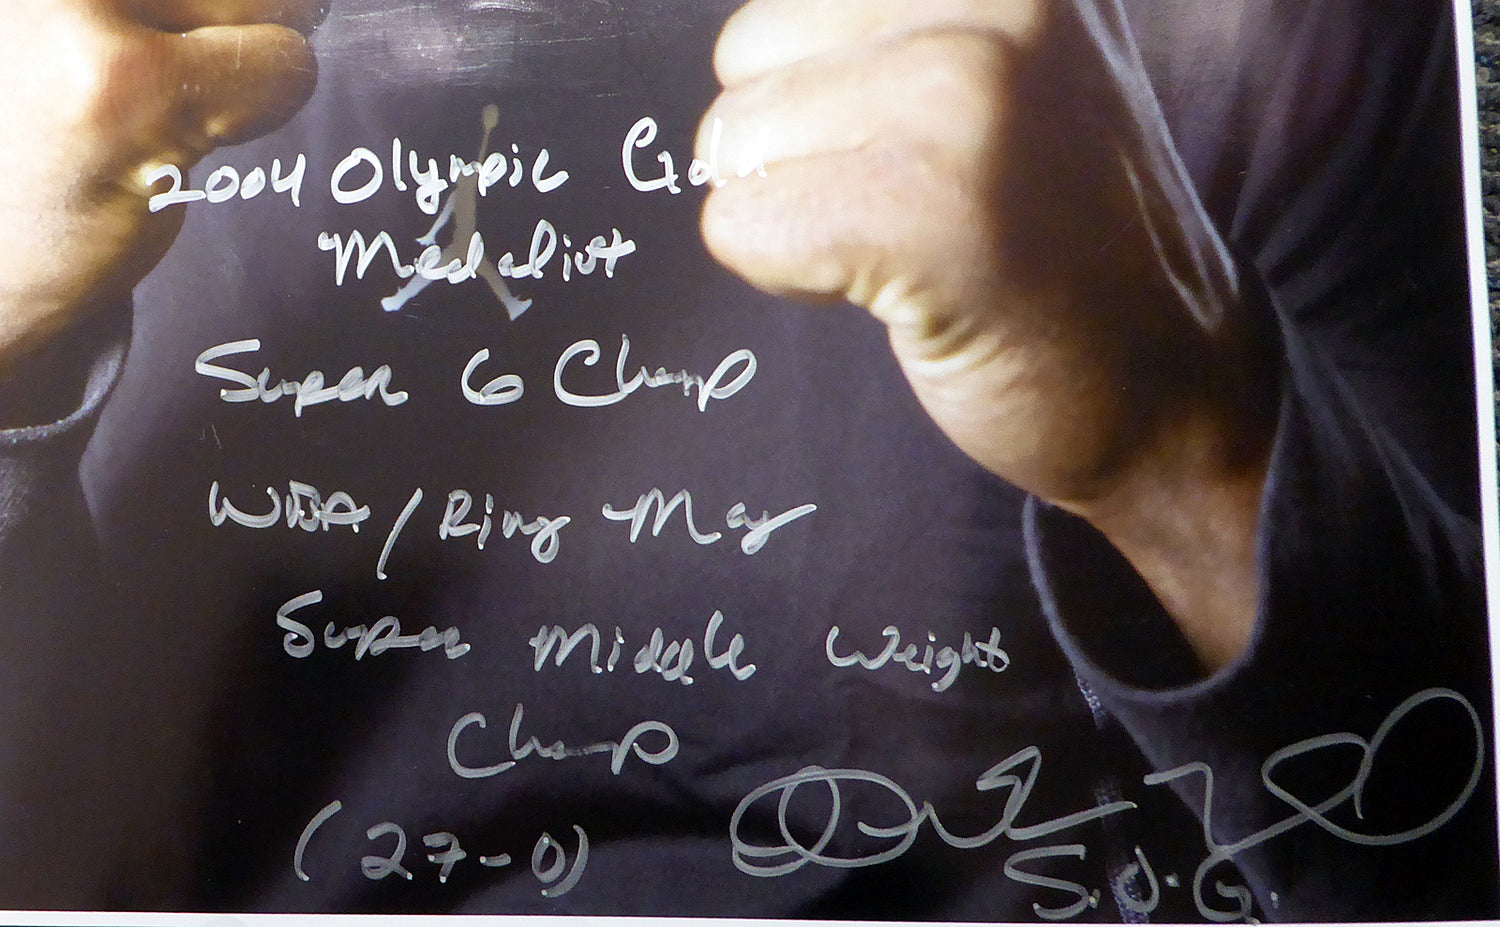 2004 Olympic Gold
Medalist
Super 6 Champ
WBA / Ring Mag
Super Middle Weight
Champ
(27-0)
S.O.G.